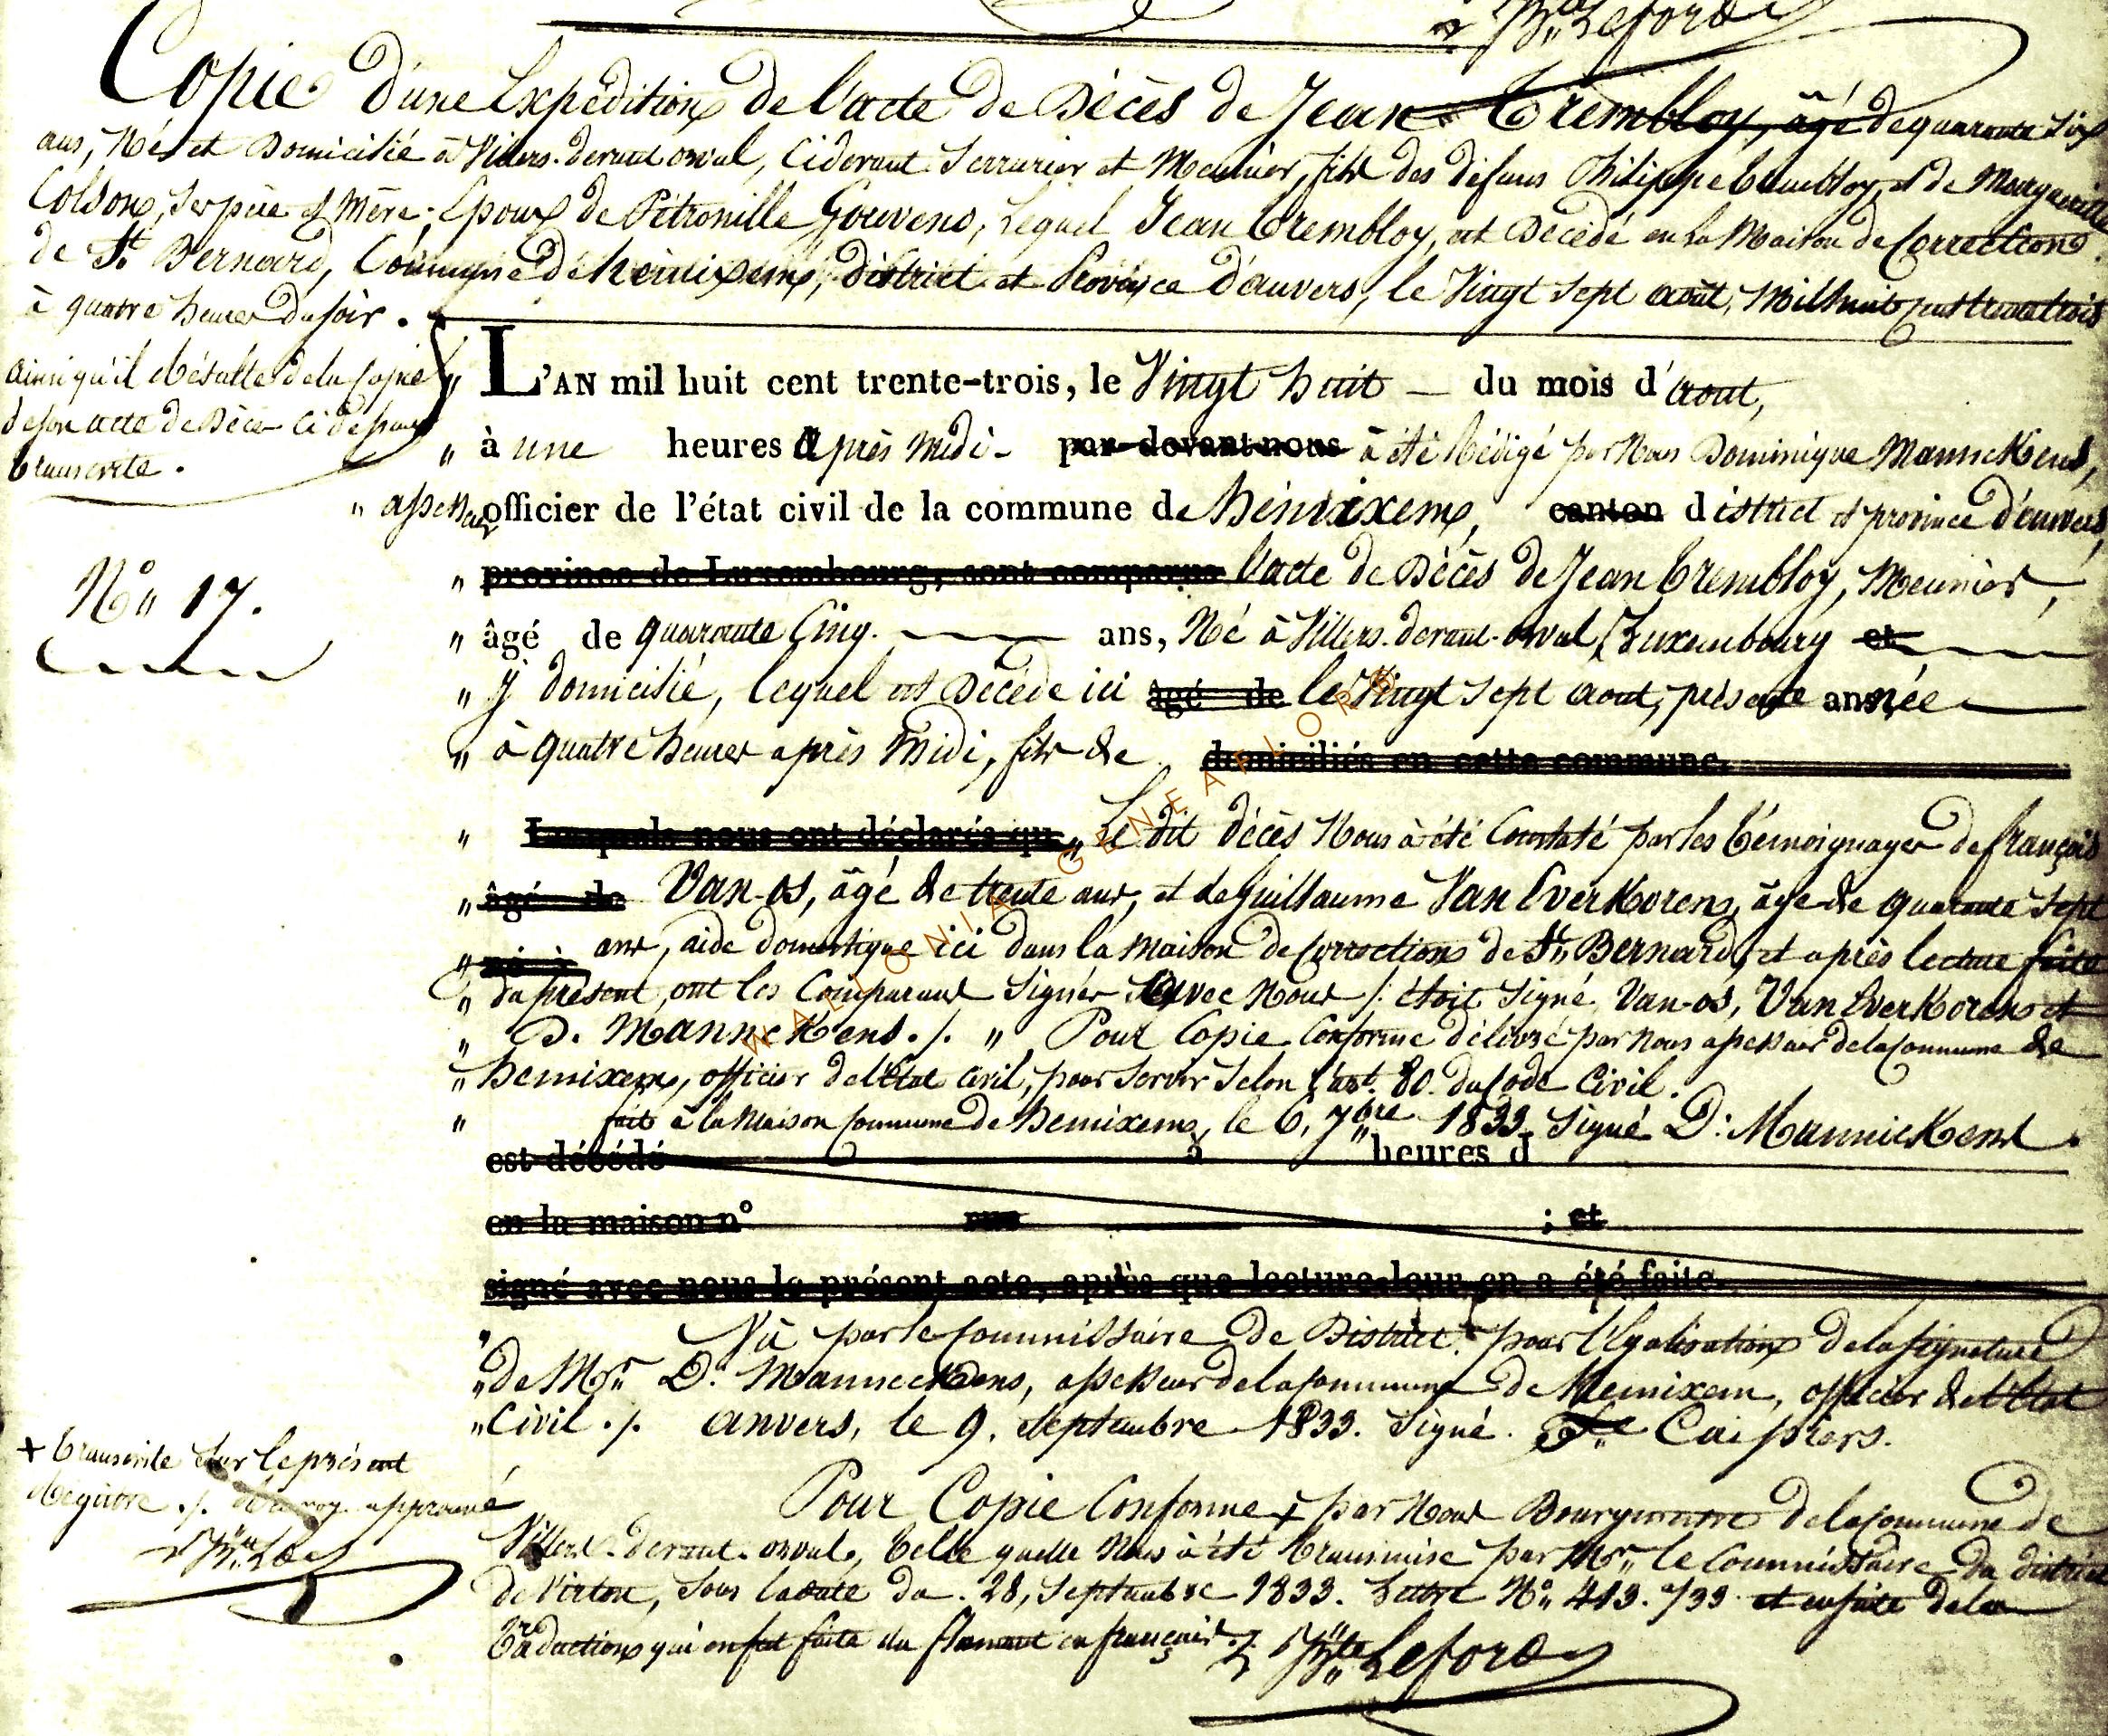 Bte Leford
Copie d'une Expédition de l'acte de Décès de Jean Trembloy, âgé de quarante six
ans, Né et Domicilié à Villers-devant-orval, Cidevant Serrurier et Meunier, fils des défuns Philippe Trembloy, et de Marguerite
Colson, ses père et Mère; Epoux de Pétronille Gouvens, Lequel Jean Trembloy, est Décédé en la Maison de Correction
de St. Bernard, Commune de hemixem, district et Province d'anvers, le Vingt sept août, Mil huit cent trente trois
à quatre heures du soir.
ainsi qu'il Résulte de la Copie
de son acte de Décès Ci dessous
transcrite.
N° 17.
" L'AN mil huit cent trente-trois, le Vingt huit — du mois d'aout,
" à une heures après Midi - par-devant nous à été Rédigé par Nous Dominique Mannekens,
" assesseur officier de l'état civil de la commune de hémixem, canton district et province d'anvers,
" province de Luxembourg, sont comparus l'acte de Décès de Jean Trembloy, Meunier,
" âgé de quarante Cinq. ans, Né à Villers-devant-orval, Luxembourg et
" y domicilié, lequel est Décédé ici âgé de le Vingt sept aout, présente année
" à quatre heures après Midi, fils de domiciliés en cette commune.
" Lesquels nous ont déclarés qu " Le dit décès Nous à été Constaté par les témoignages de françois
" âgé de Van-os, âgé de trente ans, et de Guillaume Van Everkoren, âgé de quarante sept
" né à ans, aide domestique ici dans la Maison de Correction de St. Bernard, et après lecture faite
" du présent, ont les Comparans Signés avec Nous /: étoit Signé Van-os, Van Everkoren et
" D. Mannekens ./. " Pour Copie Conforme délivré par nous assesseur de la Commune de
" hemixem, officier de l'Etat Civil, pour servir selon l'art. 80. du Code Civil.
" fait à la Maison Commune de hemixem, le 6, 7bre 1833. Signé D: Mannickens.
est décédé à heures d
en la maison n° rue ; et
signé avec nous le présent acte, après que lecture leur en a été faite.
" Vû par le Commissaire de District pour légalisation de la signature
" de Mr. D. Manneckens, assesseur de la Commune de Hemixem, officier de l'Etat
" Civil ./. anvers, le 9. Septembre 1833. Signé. Cuipiers.
+ transcrite sur le présent
Registre ./. approuvé
Pour Copie Conforme + par Nous Bourgmestre de la Commune de
Villers-devant-orval, telle quelle Nous à été transmise par Mr. le Commissaire du district
de Virton, Sous la date du 28, Septembre 1833. Lettre N° 413. /33 et ensuite de la
traduction qui en fut faite du flamant en français ./. Bte Leford
WALLONIA GENEAFLOR ©